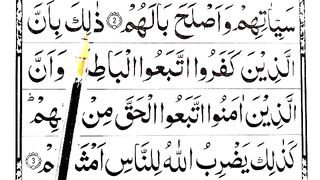 سَيِّاٰتِهِمْ وَاَصْلَحَ بَالَهُمْ ﴿2﴾ ذٰلِكَ بِاَنَّ
الَّذِيْنَ كَفَرُوا اتَّبَعُوا وَاَنَّ
الَّذِيْنَ اٰمَنُوا اتَّبَعُوا الْحَقَّ مِنْ
كَذٰلِكَ يَضْرِبُ اللّٰهُ لِلنَّاسِ ﴿3﴾